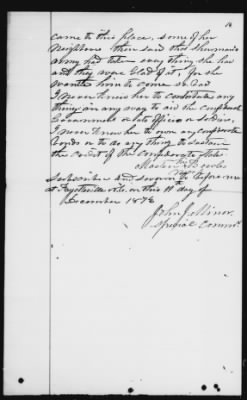 14
came to this place. some of her
neighbors then said that Sherman's
army had taken every thing she had
and they were glad of it, for she
wanted him to come so bad
I never knew her to contribute any
thing in any way to aid the confederate
Government or its officers or soldiers.
I never knew her to own any confederate
bonds or to do any thing to sustain
the credit of the confederate states
Subscribed and sworn to before me
at Fayetteville N.C. on this 11th day of
December 1878
John J. Minor
Special Commr